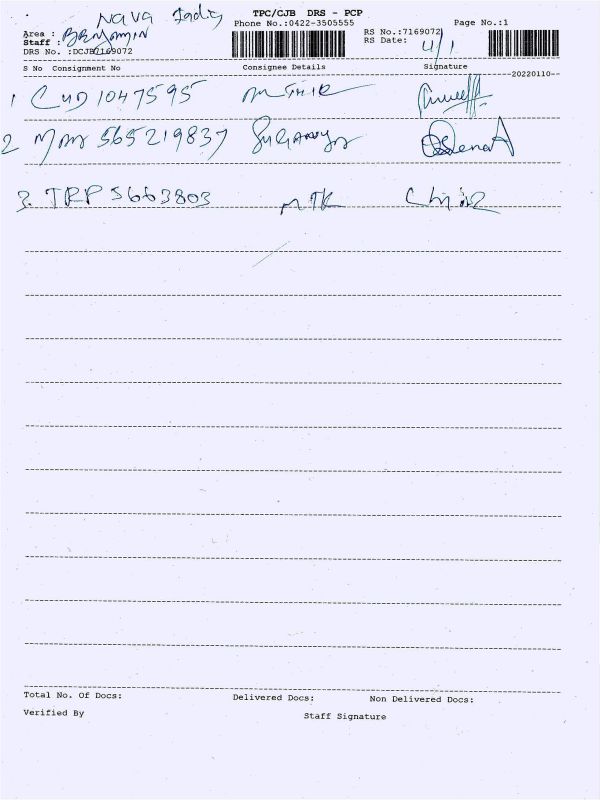 TPC/CJB DRS - PCP
Nava India
Phone No.:0422-3505555
Page No.:1
Area :
Staff : BENJAMIN
RS No.:7169072
DRS No. :DCJB7169072
RS Date: 4/1
S No Consignment No Consignee Details Signature
--20220110--
1 CUD 1047595
2 565219837 SUGANYA
3. TRP 5663803 MTK
Total No. Of Docs: Delivered Docs: Non Delivered Docs:
Verified By Staff Signature